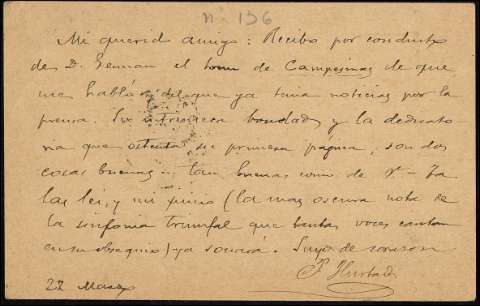 nº 136
Mi querido amigo: Recibo por conducto
de D. German el tomo de Campesinas de que
me habló y del que ya tenia noticias por la
prensa. Su intrínseca bondad y la dedicato
ria que ostenta su primera página, son dos
cosas buenas... tan buenas como de Vd. — Ya
las leí, y mi juicio (la mas oscura nota de
la sinfonia triunfal que tantas voces cantan
en su obsequio) ya sonará. Suyo de corazon
P. Hurtado
22 Marzo